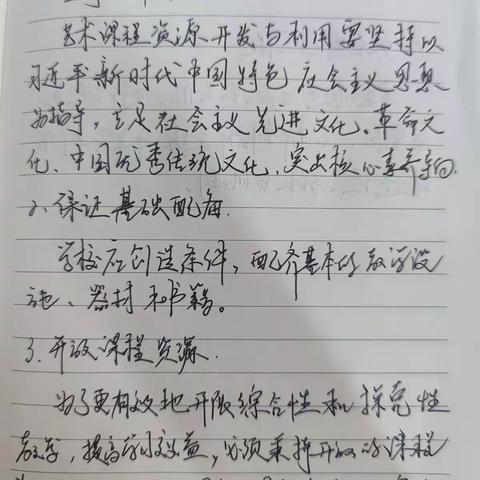 艺术课程资源开发与利用要坚持以
习近平新时代中国特色社会主义思想
为指导，立足社会主义先进文化、革命文
化、中国优秀传统文化，突出核心素养导向.
2、保证基础配备.
学校应创造条件，配齐基本的教学设
施、器材和书籍。
3、开放课程资源.
为了更有效地开展综合性和探究性
教学，提高学习效益，必须秉持开放的课程